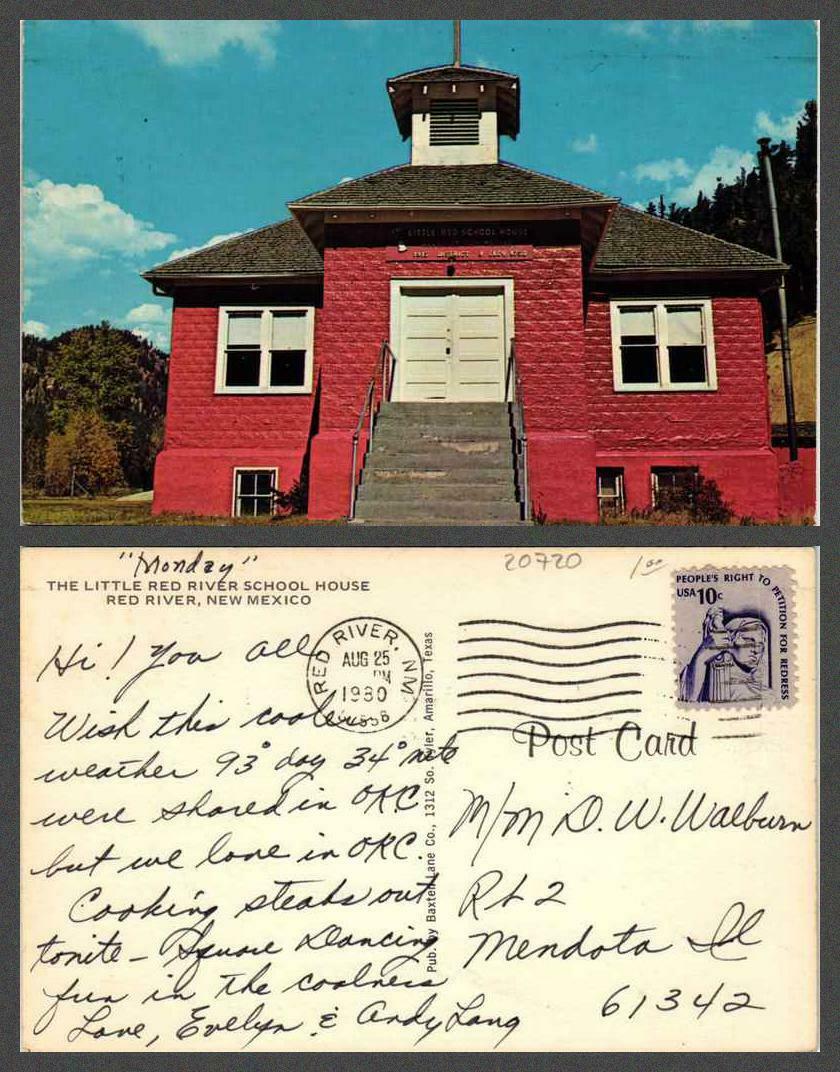 LITTLE RED SCHOOL HOUSE
"Monday"
THE LITTLE RED RIVER SCHOOL HOUSE
RED RIVER, NEW MEXICO
20720
1.00
PEOPLE'S RIGHT TO PETITION FOR REDRESS
USA 10c
RED RIVER, NM
AUG 25
PM
1980
Post Card
Hi! You all
Wish this cooler
weather 93° day 34° nite
were shared in OKC
but we love in OKC.
Cooking steaks out
tonite - Square Dancing
fun in the coolness
Love, Evelyn & Andy Lang
Pub. by Baxter Lane Co., 1312 So. Amarillo, Texas
M/M D. W. Walburn
Rt 2
Mendota Ill
61342